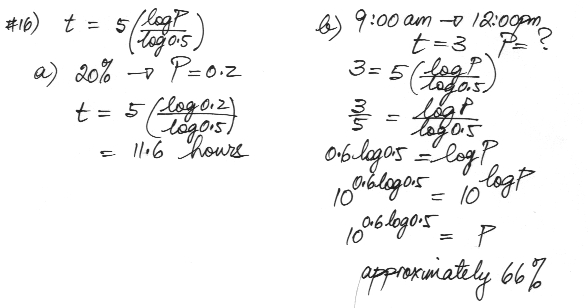 #16) t = 5(logP/log0.5)
a) 20% → P=0.2
t = 5(log0.2/log0.5)
= 11.6 hours
b) 9:00am → 12:00pm
t=3 P=?
3=5(logP/log0.5)
3/5 = logP/log0.5
0.6log0.5=logP
10^0.6log0.5 = 10^logP
10^0.6log0.5 = P
approximately 66%